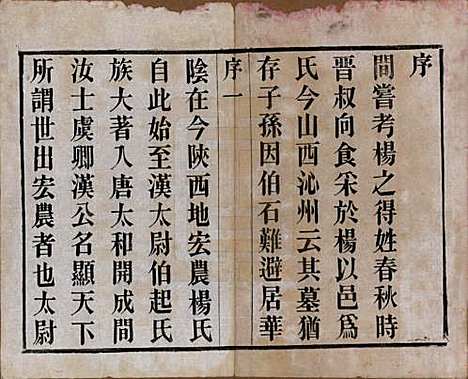 序
間嘗考楊之得姓春秋時
晋叔向食采於楊以邑爲
氏今山西沁州云其墓猶
存子孫因伯石難避居華
序 一
陰在今陝西地宏農楊氏
自此始至漢太尉伯起氏
族大著入唐太和開成間
汝士虞卿漢公名顯天下
所謂世出宏農者也太尉